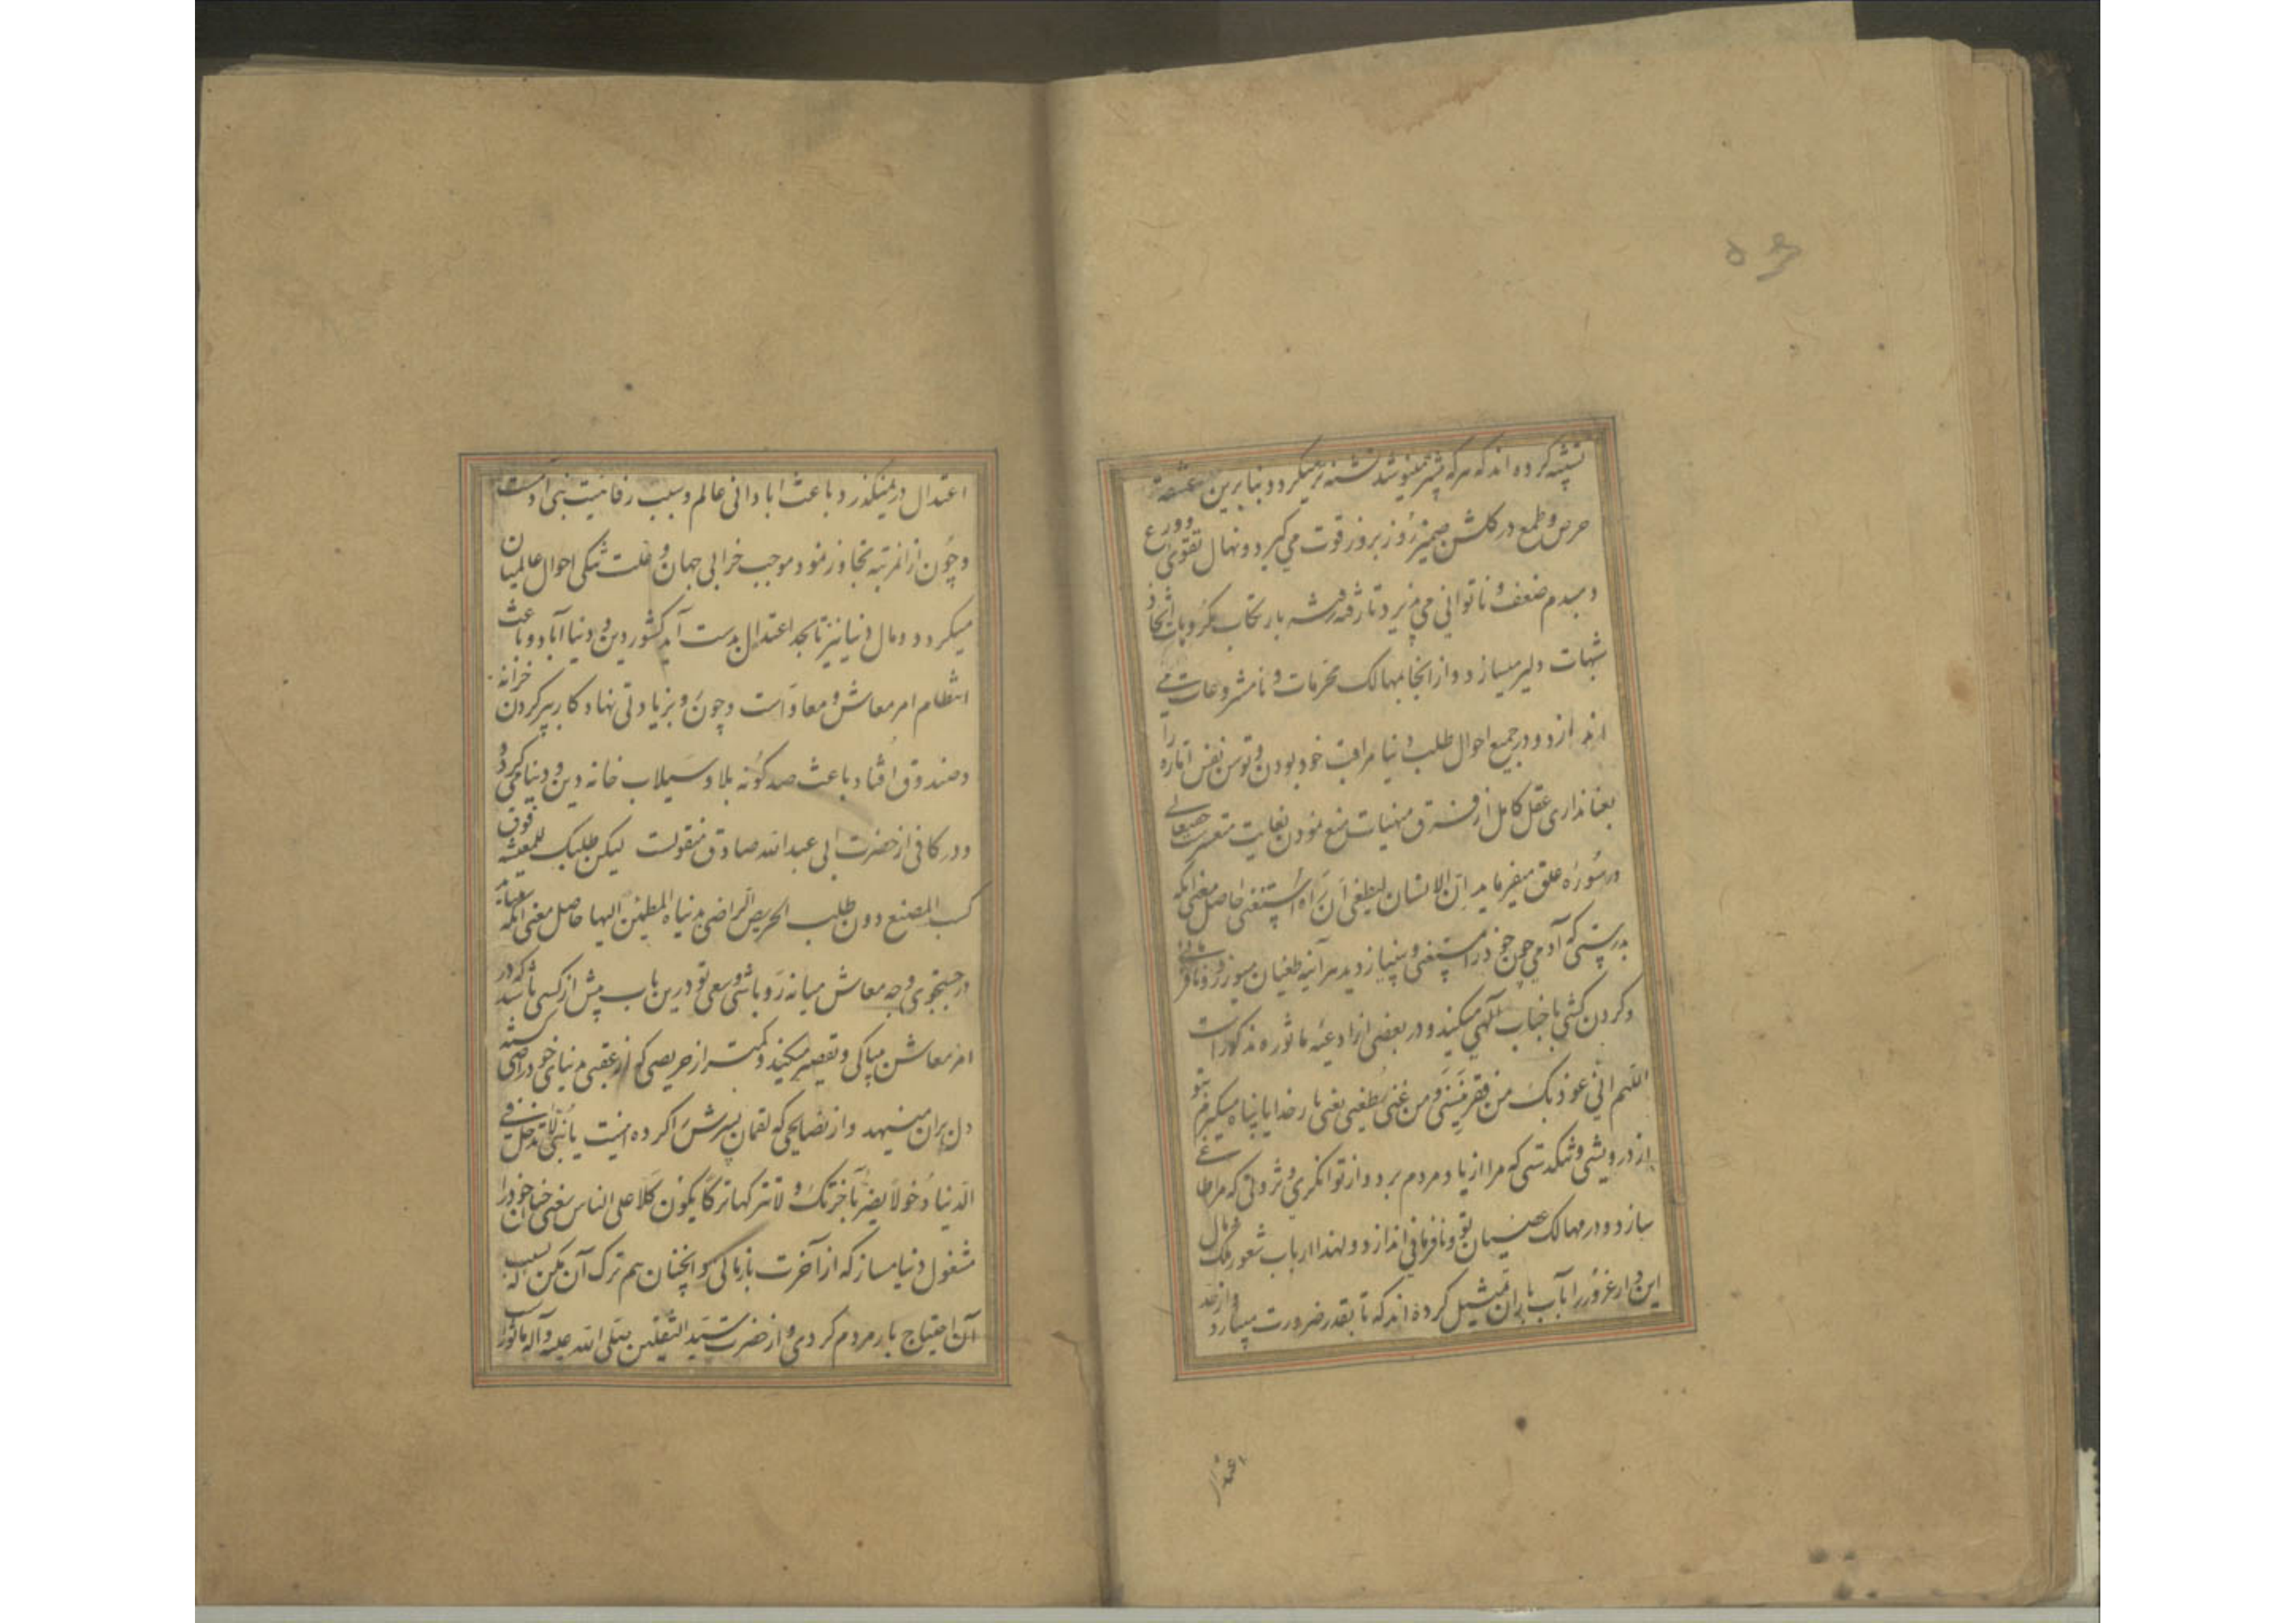 تشبیه کرده اند که هر که بیشتر مینوشد تشنه تر میگردد و بنابرین
حرص و طمع در گلشن ضمیر روز بروز قوت می گیرد و نهال تقوی و ورع
دمبدم ضعف و ناتوانی می پذیرد تا رفته رفته بارتکاب مکروبات و اتخاذ
شبهات دلیر میسازد و از انجا بمهالک محرمات و نامشروعات می
اندازد و در جمیع احوال طلب دنیا مراقب خود بودن و توسن نفس اماره را
بعنانداری عقل کامل از منهیات منع نمودن بغایت متعسر حقتعالی
در سوره علق میفرماید ان الانسان لیطغی ان راه استغنی حاصل معنی انکه
بدرستی که آدمی چون خود را مستغنی و بینیاز دید هر آینه طغیان میورزد و نافرمانی
و گردن کشی با جناب الهی میکند و در بعضی از ادعیه ماثوره مذکور است
اللهم انی اعوذ بک من فقر ینسنی و من غنی یطغینی یعنی بار خدایا پناه میگیرم بتو
از درویشی و تنگدستی که مرا از یاد مردم برد و از توانگری و ثروتی که مرا طاغی
سازد و در مهالک عصیان تو و نافرمانی اندازد و لهذا ارباب شعور ملک و مال
این دار غرور را بآب باران تمثیل کرده اند که تا بقدر ضرورت میبارد و از حد
اعتدال
اعتدال در نمیگذرد باعث ابادانی عالم و سبب رفاهیت بنی ادمست
و چون از انمرتبه تجاوز نمود موجب خرابی جهان و علت تنگی احوال عالمیان
میگردد و مال دنیا نیز تا بحد اعتدال بدست آید کشور دین و دنیا آباد و باعث
انتظام امر معاش و معاد است و چون رو بزیادتی نهاد و کار بپر کردن خزانه
و صندوق افتاد باعث صد گونه بلا و سیلاب خانه دین و دنیا می گردد
و در کافی از حضرت ابی عبدالله صادق منقولست لیکن طلبک للمعیشه فوق
کسب المضیع دون طلب الحریص الراضی بدنیاه المطمئن الیها حاصل معنی انکه میباید
در جستجوی وجه معاش میانه رو باشی و سعی تو درین باب بیش از کسی باشد که در
امر معاش بیباکی و تقصیر میکند و کمتر از حریصی که از عقبی بدنیای خود راضی گشته
دل بران مینهد و از نصایحی که لقمان پسرش را کرده اینست یا بنی لا تدخل فی
الدنیا دخولا یضر بآخرتک و لا تترکها ترکا یکون کلا علی الناس یعنی چنان خود را
مشغول دنیا مساز که از آخرت بازمانی و انچنان هم ترک آن مکن که بسبب
آن احتیاج بار مردم گردی و از حضرت سید الثقلین صلی الله علیه و آله ماثور